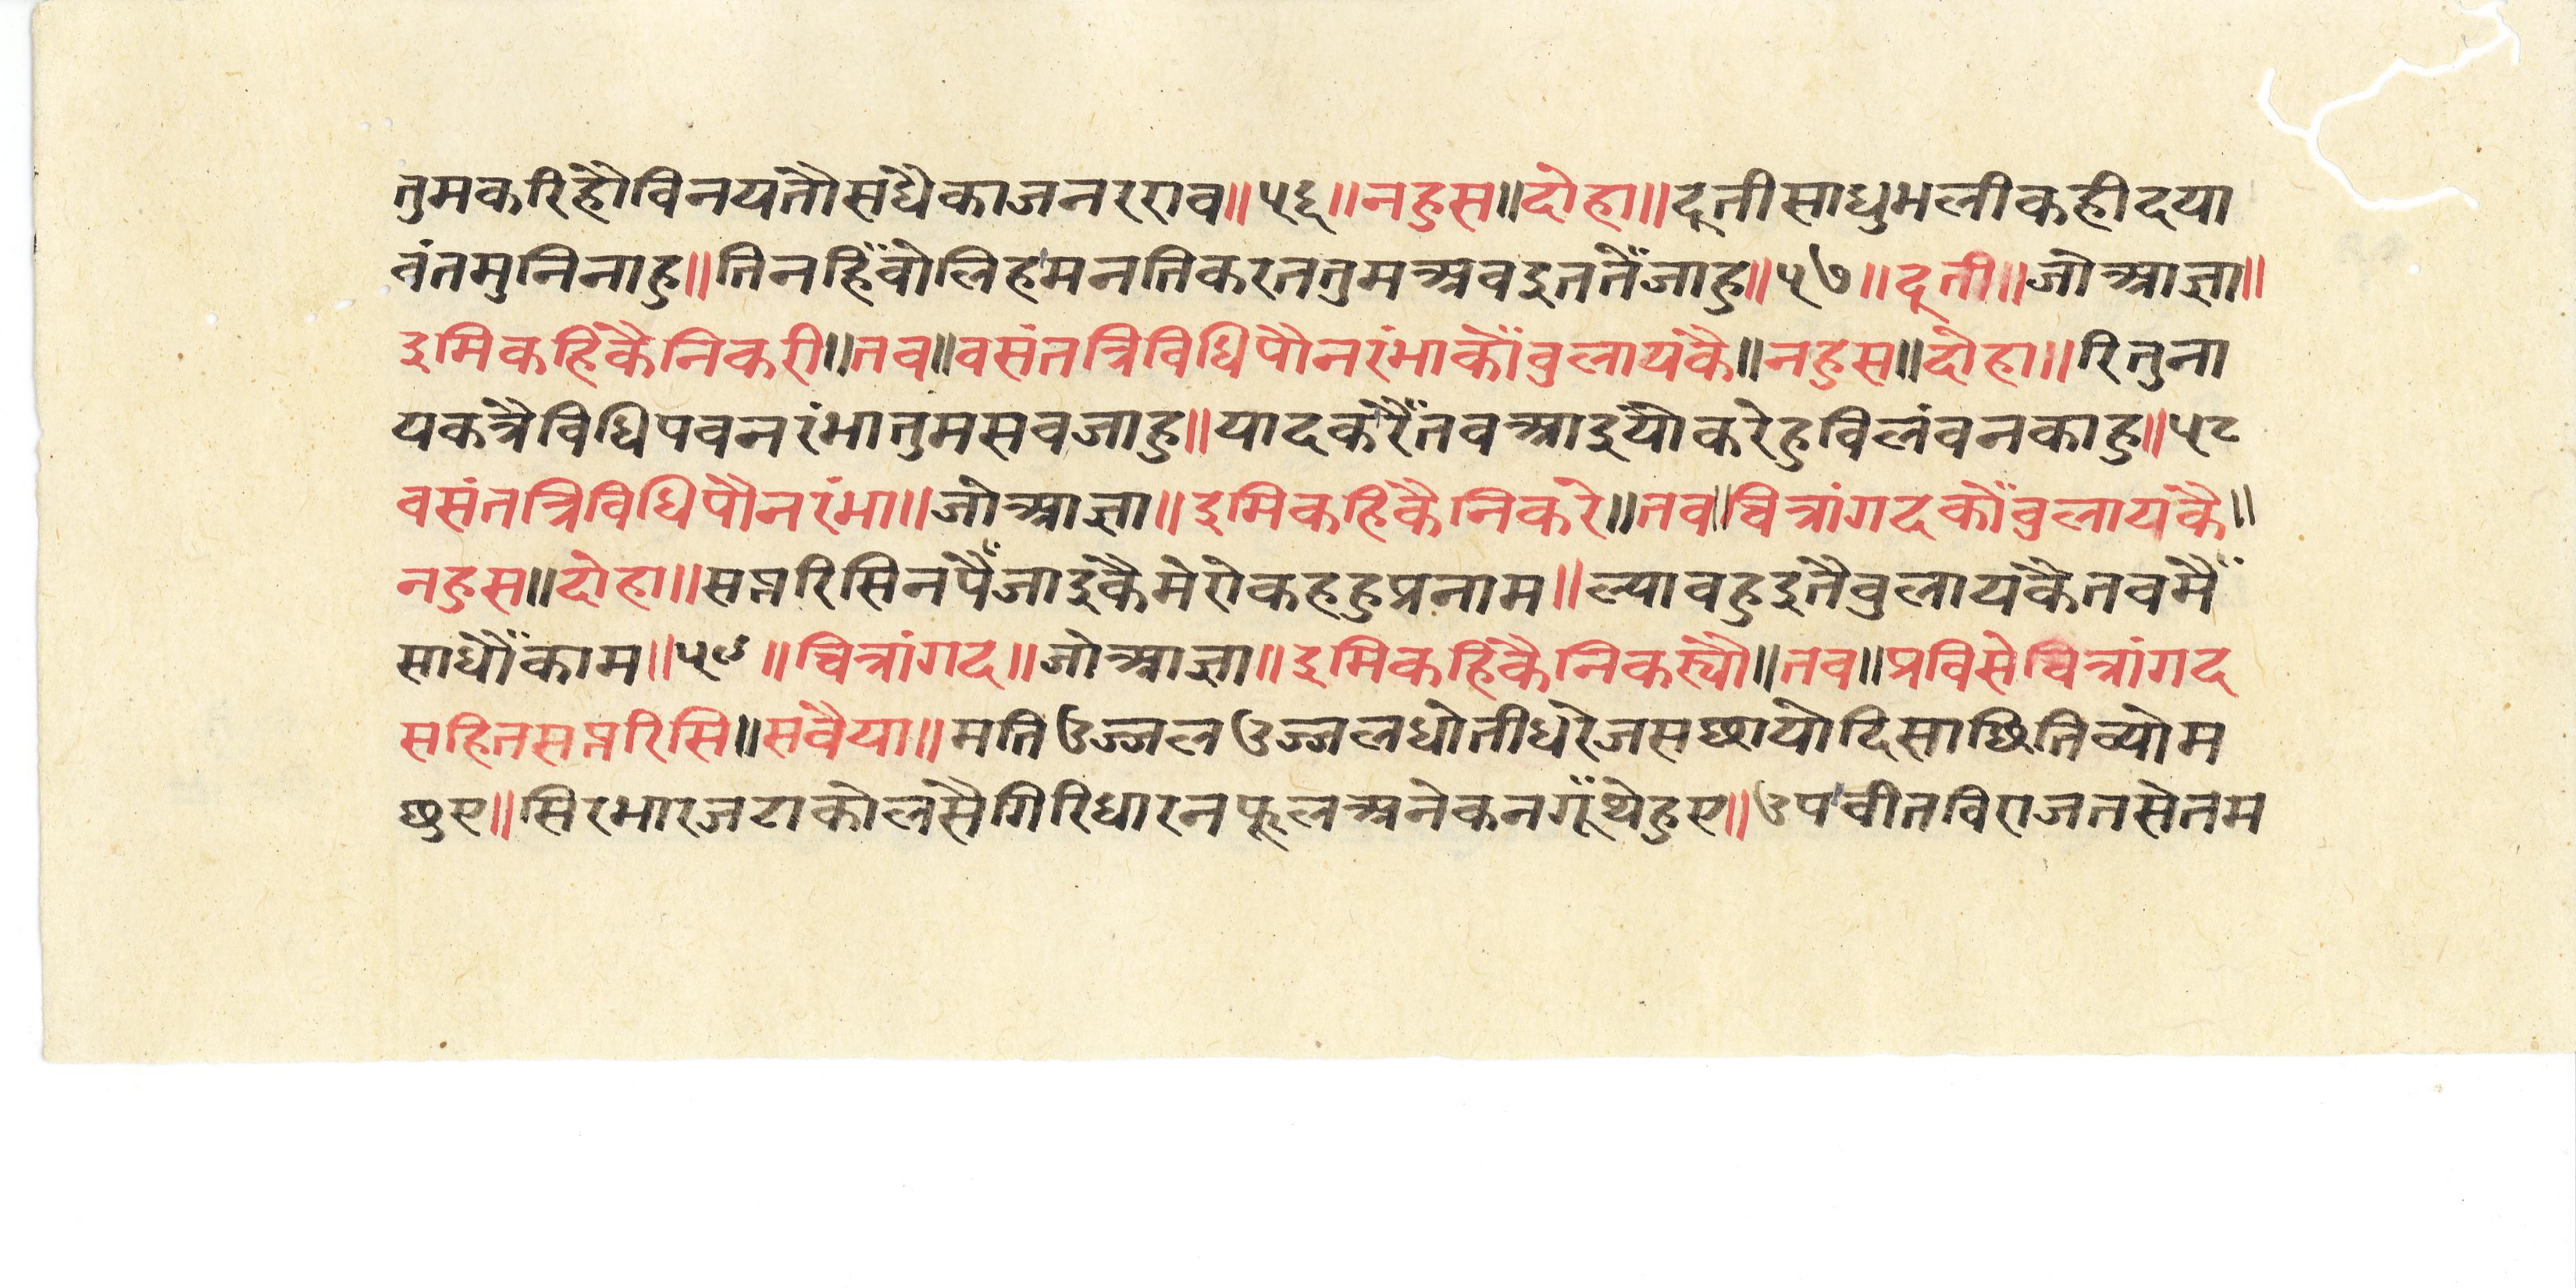 तुमकरिहौविनयतौसधैकाजनरराव॥५६॥नहुस॥दोहा॥दूतीसाधुभलीकहीदया
वंतमुनिनाहु॥तिनहिँवोलिहमनतिकरततुमअवइततेँजाहु॥५७॥दूती॥जोआज्ञा॥
इमिकहिकैनिकरी॥तव॥वसंतत्रिविधिपौनरंभाकोँवुलायकै॥नहुस॥दोहा॥रितुना
यकत्रैविधिपवनरंभातुमसवजाहु॥यादकरैँतवआइयोकरेहुविलंवनकाहु॥५८
वसंतत्रिविधिपौनरंभा॥जोआज्ञा॥इमिकहिकैनिकरे॥तव॥चित्रांगदकोँवुलायकै॥
नहुस॥दोहा॥सप्तरिसिनपैँजाइकैमेरोकहहुप्रनाम॥ल्यावहुइतैवुलायकैतवमैँ
साधौँकाम॥५९॥चित्रांगद॥जोआज्ञा॥इमिकहिकैनिकस्यौ॥तव॥प्रविसेचित्रांगद
सहितसप्तरिसि॥सवैया॥मतिउज्जलउज्जलधोतीधरेजसछायोदिसाछितिव्योम
छुए॥सिरभारजटाकोलसैगिरिधारनफूलअनेकनगूँथेहुए॥उपवीतविराजतसेतम